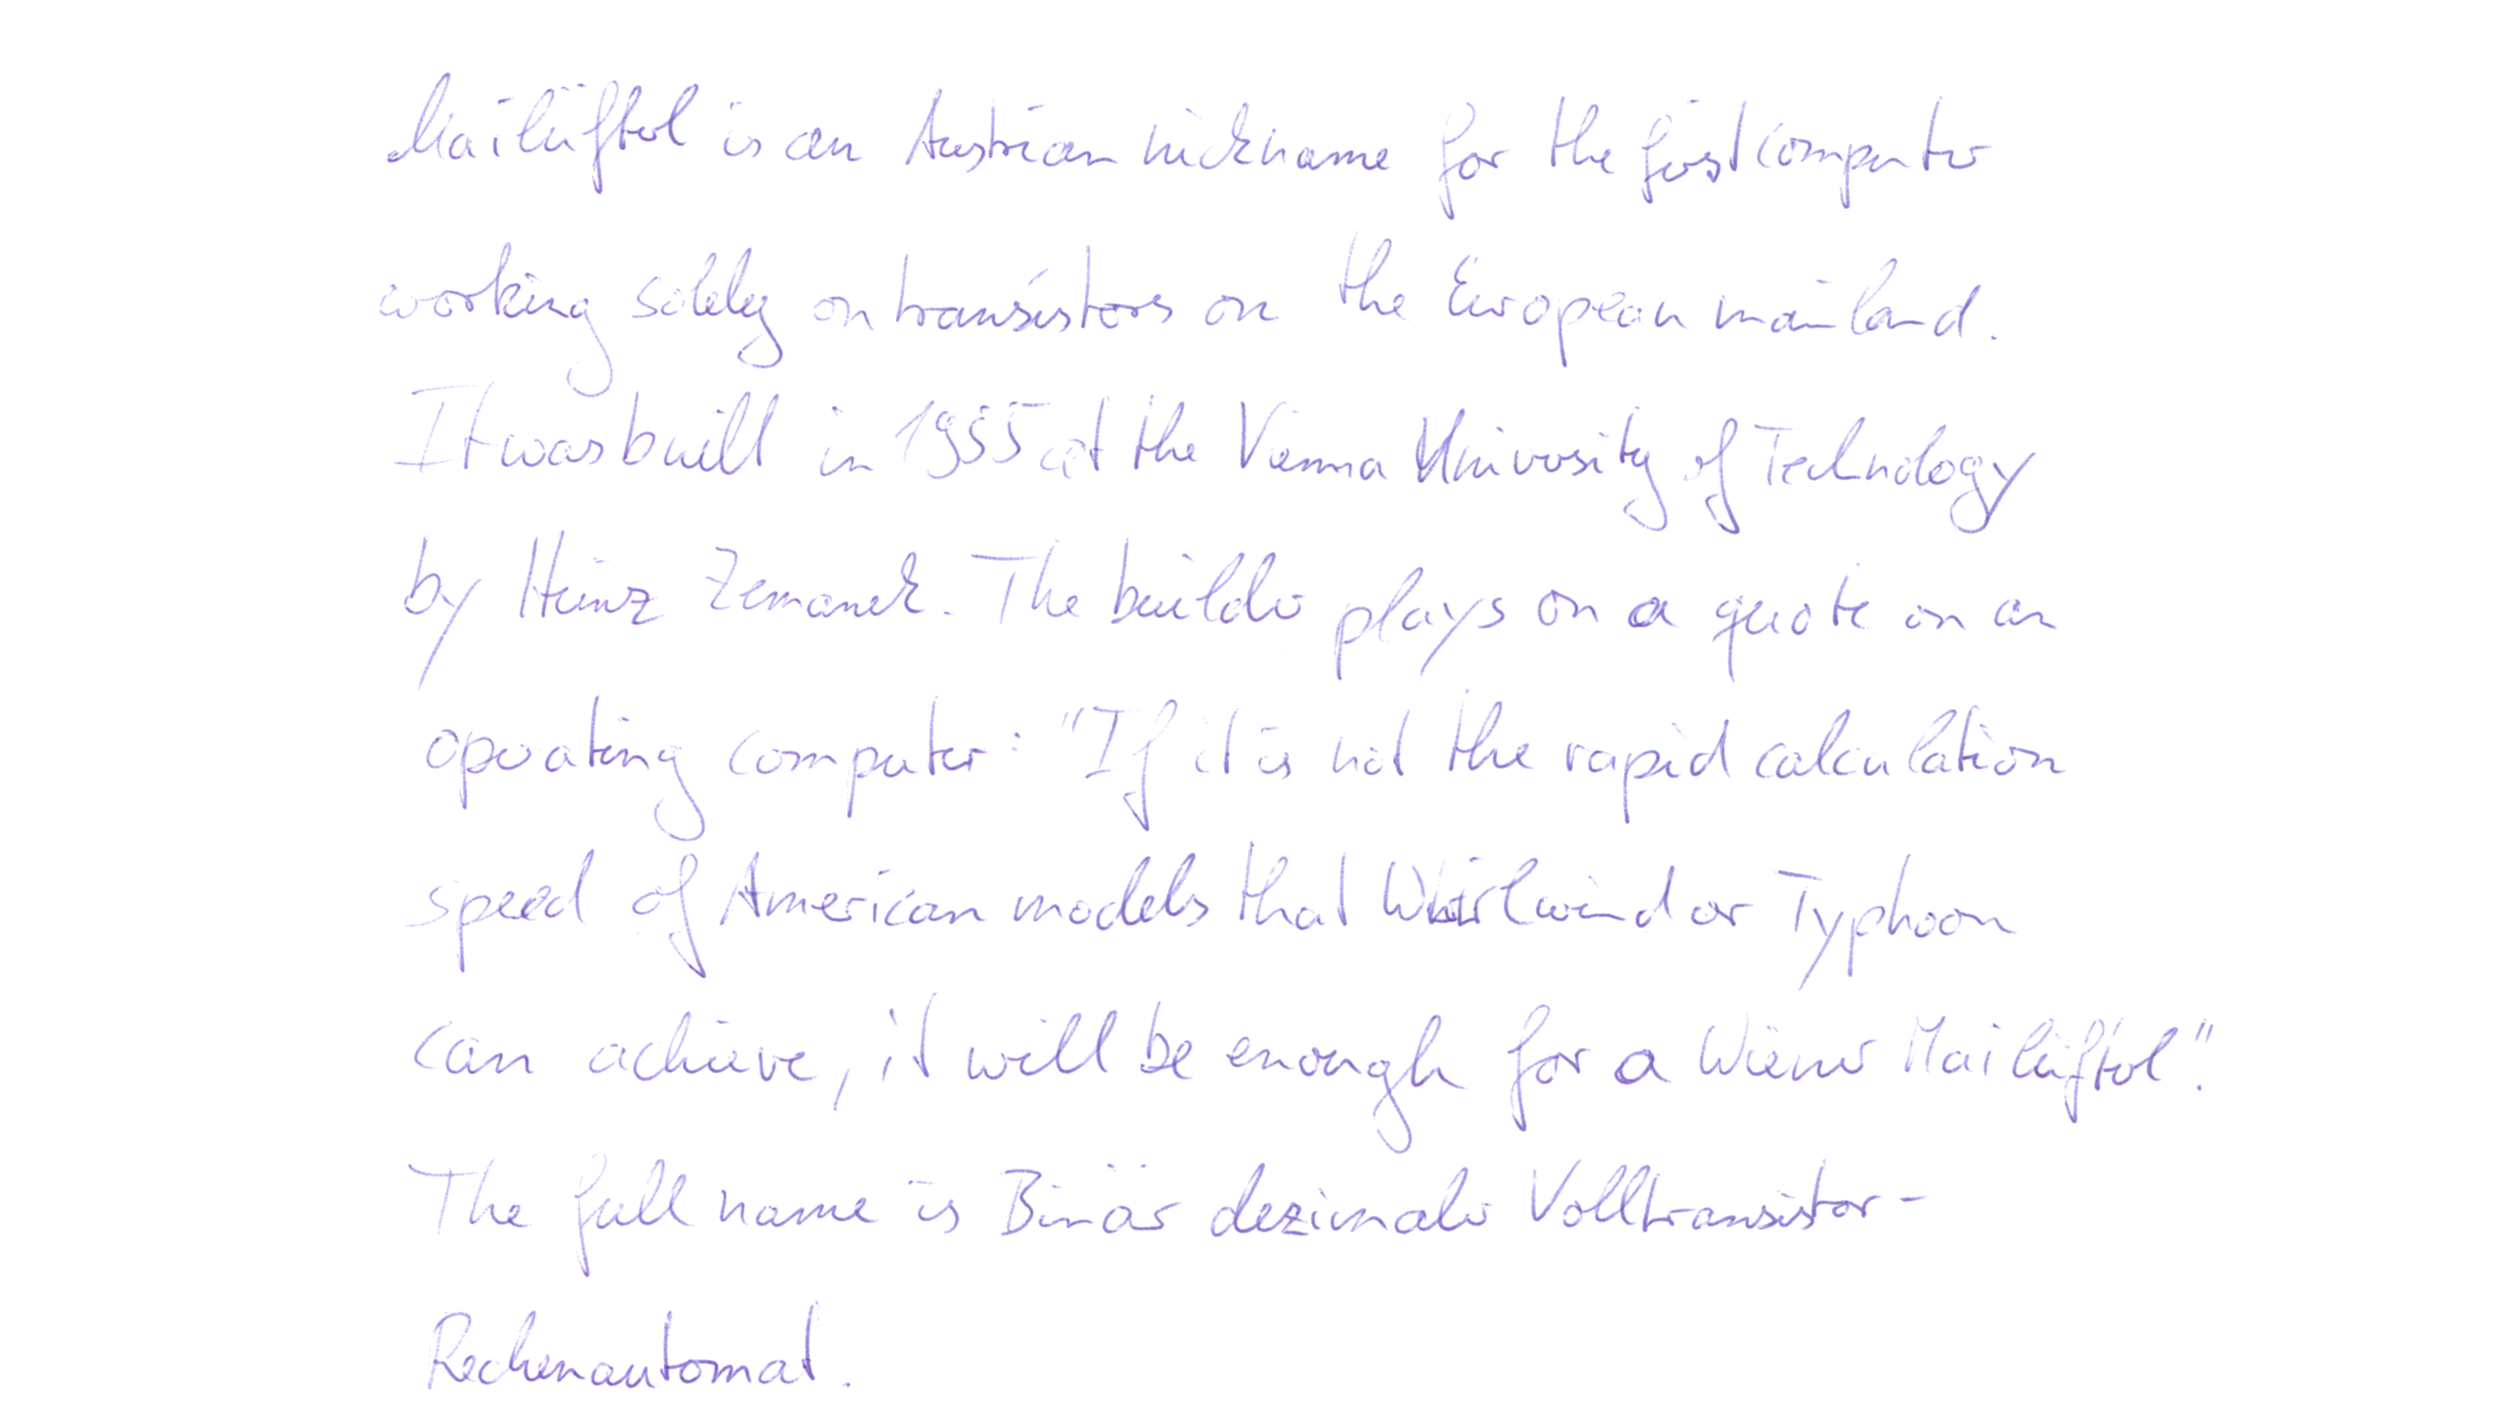 Mailüfterl is an Austrian nickname for the first computer
working solely on transistors on the European mainland.
It was built in 1955 at the Vienna University of Technology
by Heinz Zemanek. The builder plays on a quote on an
operating computer: "If it is not the rapid calculation
speed of American models that Whirlwind or Typhoon
can achieve, it will be enough for a Wiener Mailüfterl".
The full name is Binär dezimaler Volltransistor-
Rechenautomat.